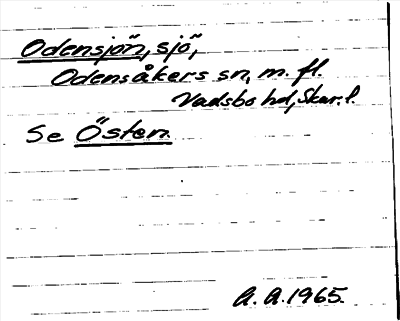 Odensjön, sjö,
Odensåkers sn, m. fl.
Vadsbo hd, Skar. l.
Se Östen
A. A. 1965.